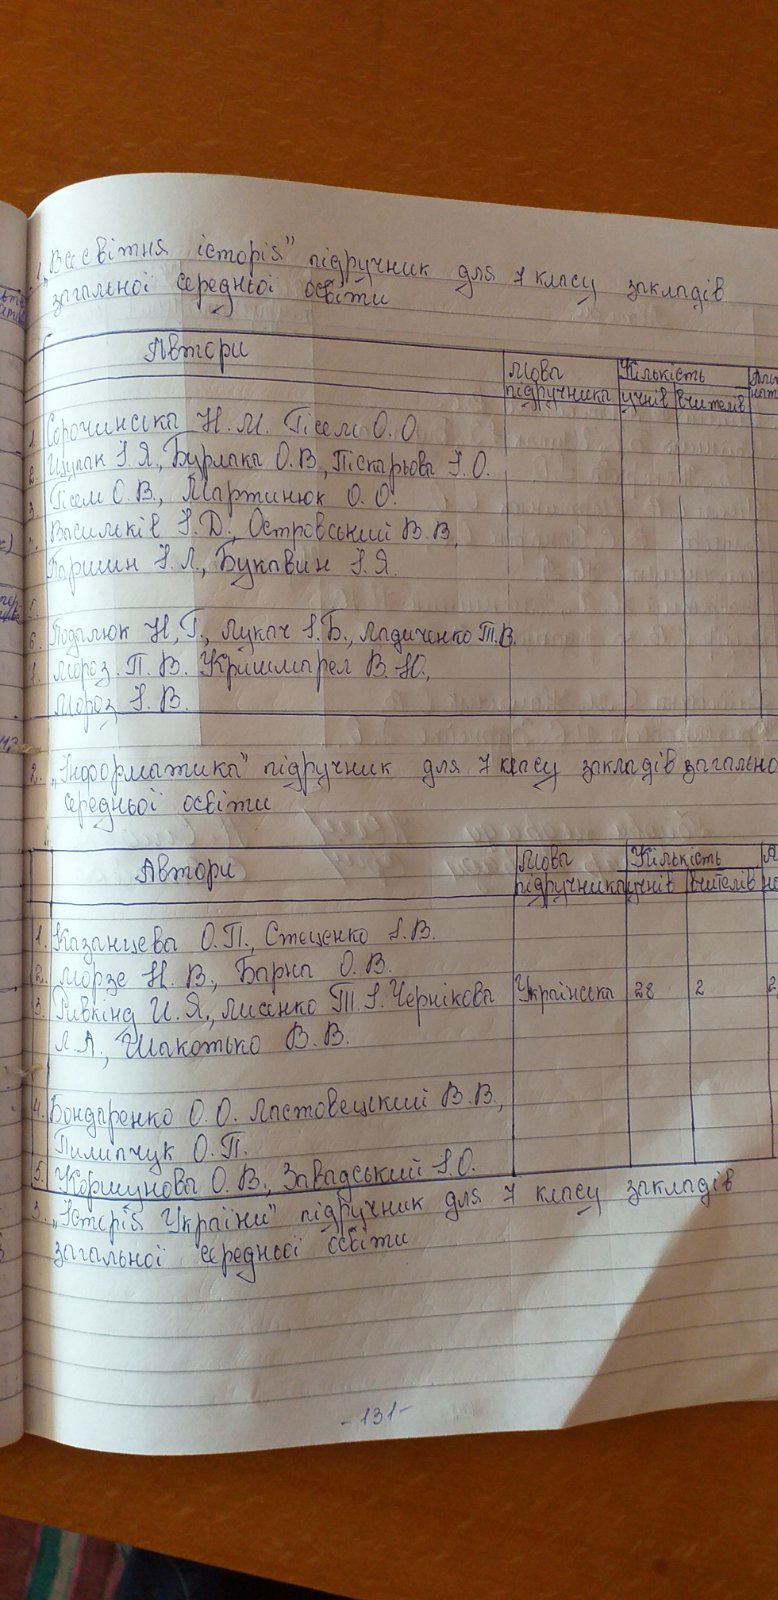 1. „Всесвітня історія" підручник для 7 класу закладів
загальної середньої освіти
Автори
Мова
підручника
Кількість
учнів вчителів
1. Сорочинська Н. М. Гісем О. О.
2. Щупак І. Я., Бурлака О. В., Піскарьова І. О.
3. Гісем О. В., Мартинюк О. О.
4. Васильків І. Д., Островський В. В.,
Паршин І. Л., Букавин І. Я.
5.
6. Подалюк Н, Г., Лукач І. Б., Ладиченко Т. В.
Мороз П. В.
Мороз І. В.
2. „Інформатика" підручник для 7 класу закладів загально
середньої освіти
Автори
Мова
підручника
Кількість
учнів вчителів
1. Казанцева О. П., Стеценко І. В.
2. Морзе Н. В., Барна О. В.
3. Ривкінд Й. Я., Лисенко Т. І. Чернікова Українська 28 2 2
Л. А., Шакотько В. В.
4. Бондаренко О. О. Ластовецький В. В.,
Пилипчук О. П.
5. Коршунова О. В., Завадський І. О.
3. „Історія України" підручник для 7 класу закладів
загальної середньої освіти
- 131 -